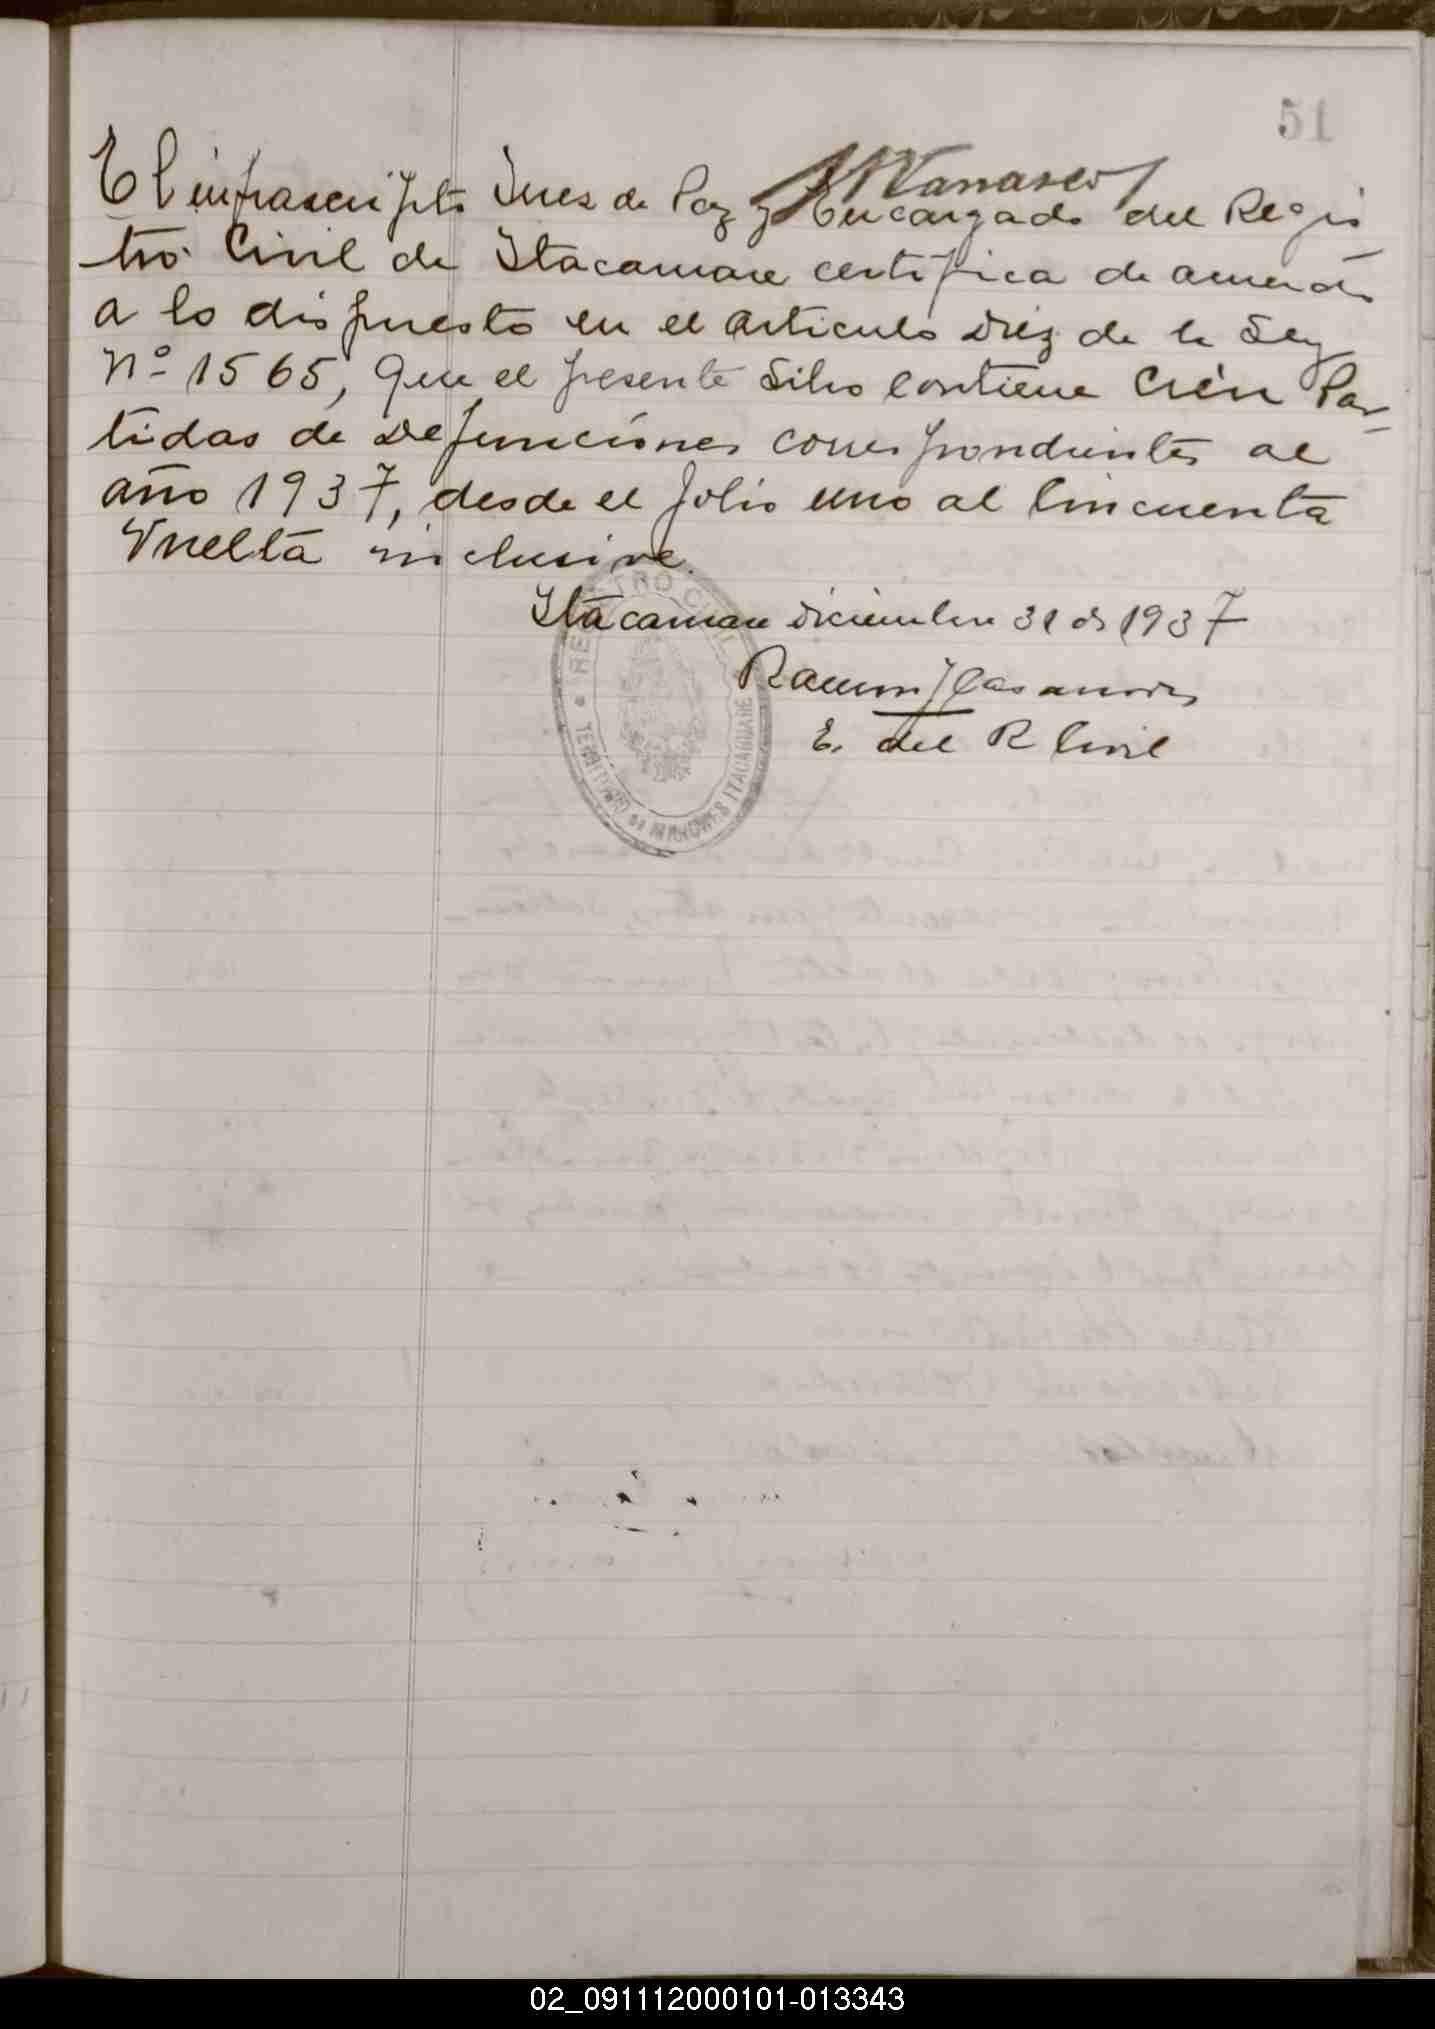 51
El infrascripto Juez de Paz y Encargado del Regis
tro Civil de Itacaruare certifica de acuerdo
a lo dispuesto en el articulo Diez de la Ley
Nº 1565, Que el presente Libro contiene Cien Par-
tidas de Defunciones correspondientes al
año 1937, desde el folio uno al Cincuenta
Vuelta inclusive.
Itacaruare diciembre 31 de 1937
Ramon
E. del R Civil
REGISTRO CIVIL
TERRITORIO DE MISIONES ITACARUARE
02_091112000101-013343